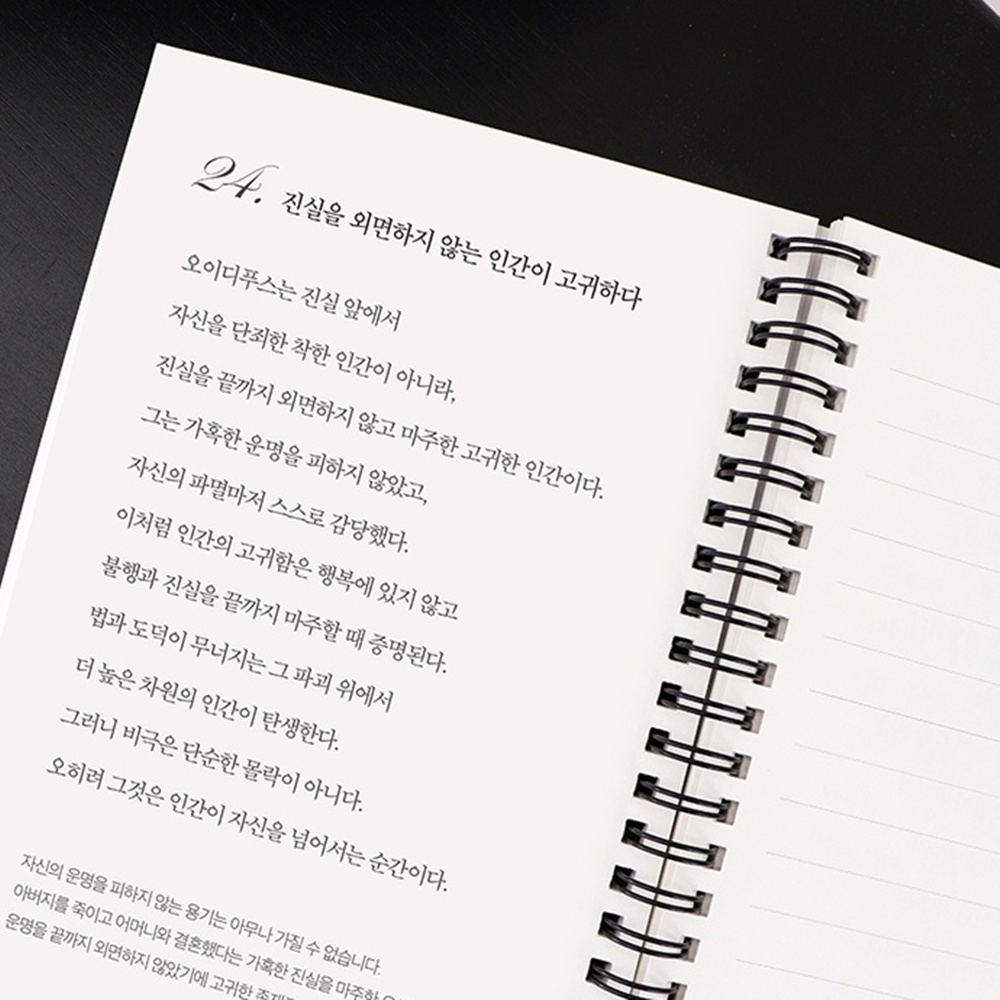 24. 진실을 외면하지 않는 인간이 고귀하다
오이디푸스는 진실 앞에서
자신을 단죄한 착한 인간이 아니라,
진실을 끝까지 외면하지 않고 마주한 고귀한 인간이다.
그는 가혹한 운명을 피하지 않았고,
자신의 파멸마저 스스로 감당했다.
이처럼 인간의 고귀함은 행복에 있지 않고
불행과 진실을 끝까지 마주할 때 증명된다.
법과 도덕이 무너지는 그 파괴 위에서
더 높은 차원의 인간이 탄생한다.
그러니 비극은 단순한 몰락이 아니다.
오히려 그것은 인간이 자신을 넘어서는 순간이다.
자신의 운명을 피하지 않는 용기는 아무나 가질 수 없습니다.
아버지를 죽이고 어머니와 결혼했다는 가혹한 진실을 마주한
운명을 끝까지 외면하지 않았기에 고귀한